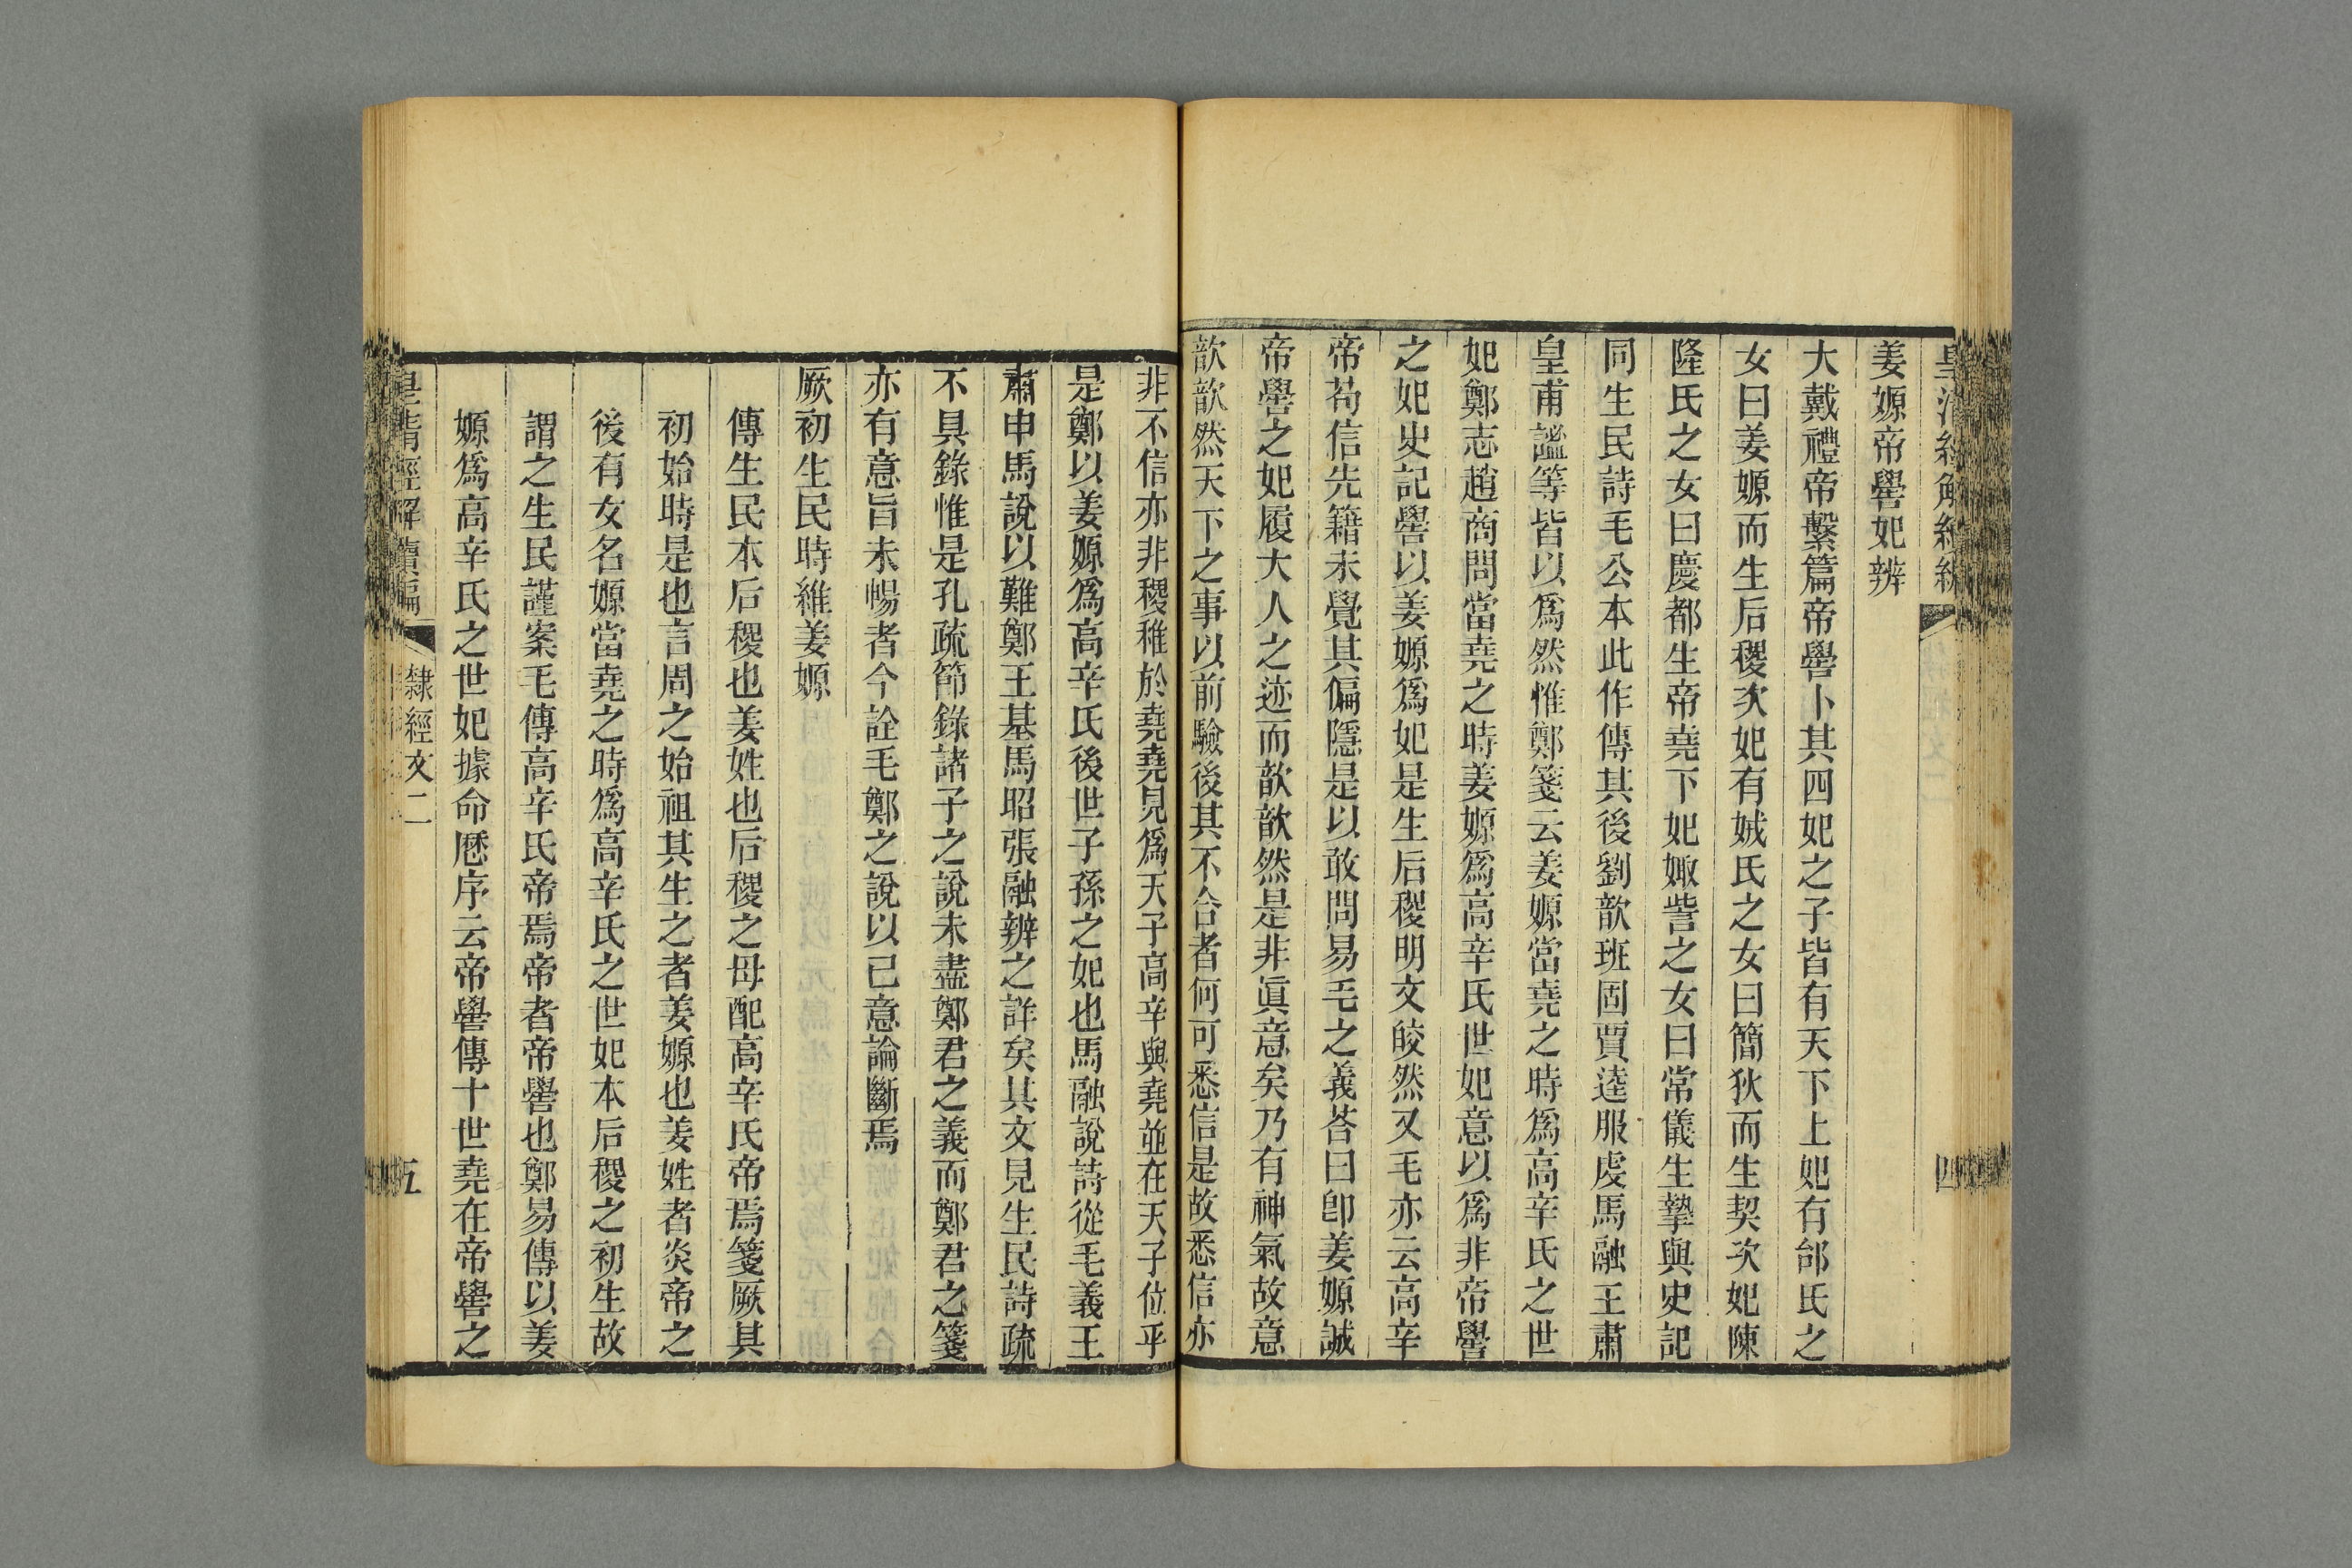 姜嫄帝嚳妃辨
大戴禮帝繫篇帝嚳卜其四妃之子皆有天下上妃有邰氏之
女曰姜嫄而生后稷次妃有娀氏之女曰簡狄而生契次妃陳
隆氏之女曰慶都生帝堯下妃娵訾之女曰常儀生摯與史記
同生民詩毛公本此作傳其後劉歆班固賈逵服虔馬融王肅
皇甫謐等皆以爲然惟鄭箋云姜嫄當堯之時爲高辛氏之世
妃鄭志趙商問當堯之時姜嫄爲高辛氏世妃意以爲非帝嚳
之妃史記嚳以姜嫄爲妃是生后稷明文皎然又毛亦云高辛
帝苟信先籍未覺其偏隱是以敢問易毛之義荅曰卽姜嫄誠
帝嚳之妃履大人之迹而歆歆然是非眞意矣乃有神氣故意
歆歆然天下之事以前驗後其不合者何可悉信是故悉信亦
非不信亦非稷稚於堯堯見爲天子高辛與堯並在天子位乎
是鄭以姜嫄爲高辛氏後世子孫之妃也馬融說詩從毛義王
肅申馬說以難鄭王基馬昭張融辨之詳矣其文見生民詩疏
不具錄惟是孔疏節錄諸子之說未盡鄭君之義而鄭君之箋
亦有意旨未暢者今詮毛鄭之說以已意論斷焉
厥初生民時維姜嫄
傳生民本后稷也姜姓也后稷之母配高辛氏帝焉箋厥其
初始時是也言周之始祖其生之者姜嫄也姜姓者炎帝之
後有女名嫄當堯之時爲高辛氏之世妃本后稷之初生故
謂之生民謹案毛傳高辛氏帝焉帝者帝嚳也鄭易傳以姜
嫄爲高辛氏之世妃據命厯序云帝嚳傳十世堯在帝嚳之
皇清經解續編 隸經文二 五